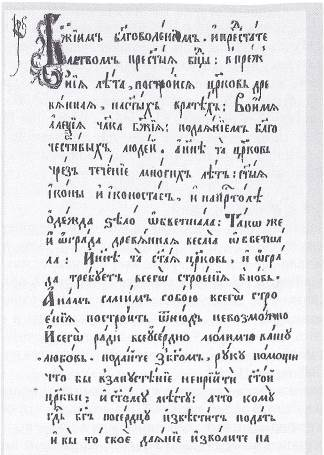 Бжїимъ благоволенїемъ. и прⷭ҇тате
молитвомъ прест҃ыя бцⷣы: в преж
нїя лѣта, построися црковь дре
вянная, на ст҃ыхъ вратѣхъ: Во имя
алеѯїя чл҃ка бж҃їя: подаянїемъ благо
честивыхъ людей. а нн҃ѣ та црковь
чрезъ теченїе многихъ лѣтъ: ст҃ыя
иконы и иконостасъ, и на прⷭ҇толѣ
одежда ѕѣло ѡбветшала: Такѡ же
и ѡграда древянная весма ѡбветша
ла: И нн҃ѣ та ст҃ая црковь, и ѡгра
да требуетъ всегѡ строенїя вновь.
А намъ самимъ собою всегѡ стро
енїя построить ѿнюдъ невозможно
И сегѡ ради всеусердно молимъ вашу
любовь. подайте з бг҃омъ, руку помощи
что бы в запустѣнїе не прїити ст҃ой
цркви: и ст҃ому мѣсту: а что кому
гдⷭ҇ь бг҃ъ по сердцу извѣститъ подать
и вы то свое даянїе изволите на